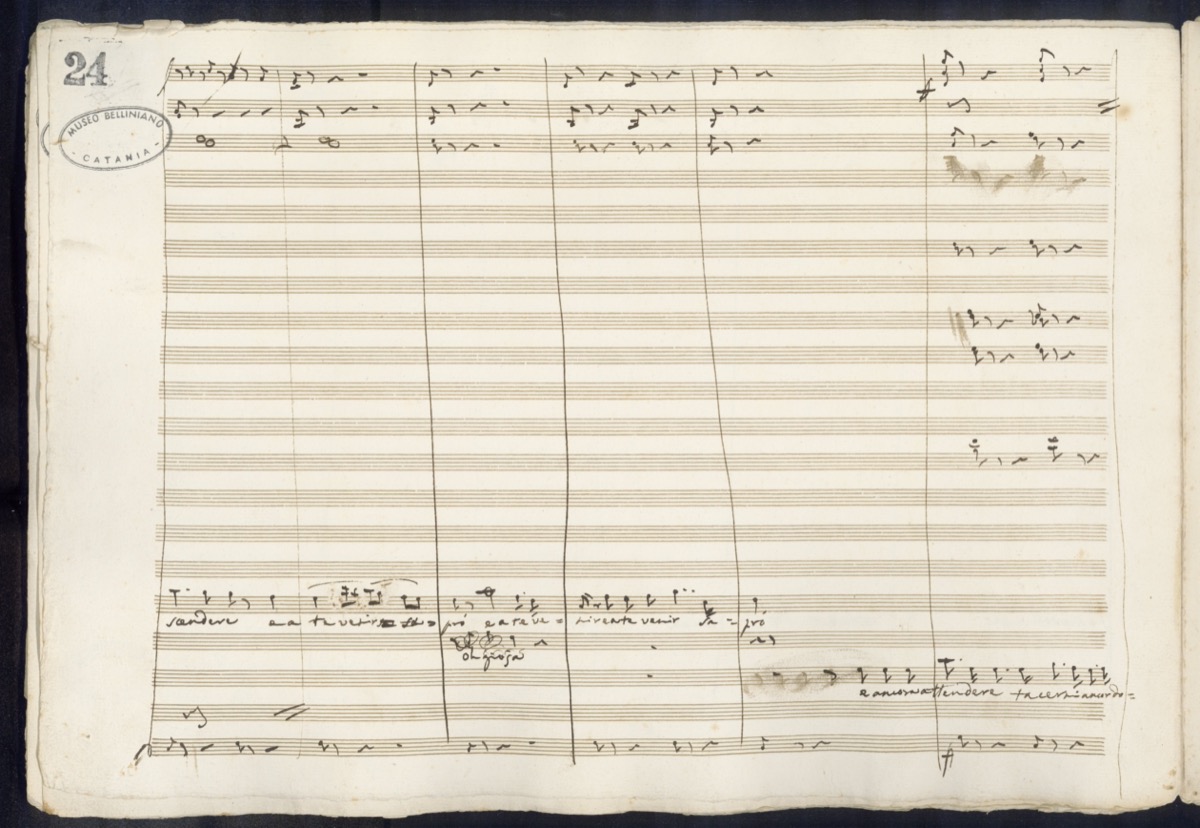 24
MUSEO BELLINIANO
- CATANIA -
f
scendere e a te venir sa = prò e a te ve = nire a te venir sa = prò
oh gioja
e ancora attendere tacer ancor do =
f